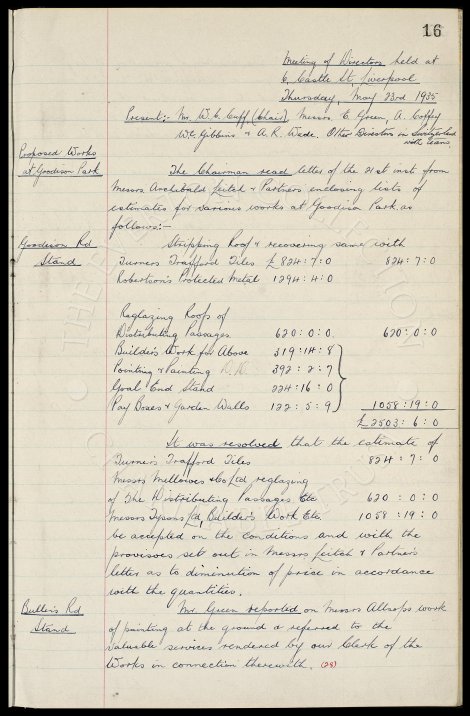 16
Meeting of Directors held at
6, Castle St, Liverpool
Thursday, May 23rd 1935
Present:- Mr. W.C. Cuff, (Chair), Messrs. C. Green, A. Coffey
W.C. Gibbins & A.R. Wade. Other Directors in Switzerland
with teams.
Proposed Works
at Goodison Park
The Chairman read letter of the 21st inst from
Messrs Archibald Leitch & Partners enclosing lists of
estimates for various works at Goodison Park as
follows:-
Goodison Rd
Stand
Stripping Roof & recovering same with
Turners Trafford Tiles £824:7:0 824:7:0
Robertson's Protected Metal 1294:4:0
Reglazing Roofs of
Distributing Passages 620:0:0. 620:0:0
Builder's Work for Above 319:14:8
Pointing & Painting 392:2:7
Goal End Stand 224:16:0
Pay Boxes & Garden Walls 122:5:9 1058:19:0
£2503:6:0
It was resolved that the estimate of
Turner's Trafford Tiles 824:7:0
Messrs Mellowes & Co Ltd reglazing
of the Distributing Passages Etc 620:0:0
Messrs Tysons Ltd, Builder's Work Etc. 1058:19:0
be accepted on the conditions and with the
provisoes set out in Messrs Leitch & Partners
letter as to diminution of price in accordance
with the quantities.
Bullens Rd
Stand
Mr. Green reported on Messrs Allsops work
of painting at the ground & referred to the
valuable services rendered by our Clerk of the
Works in connection therewith. (28)